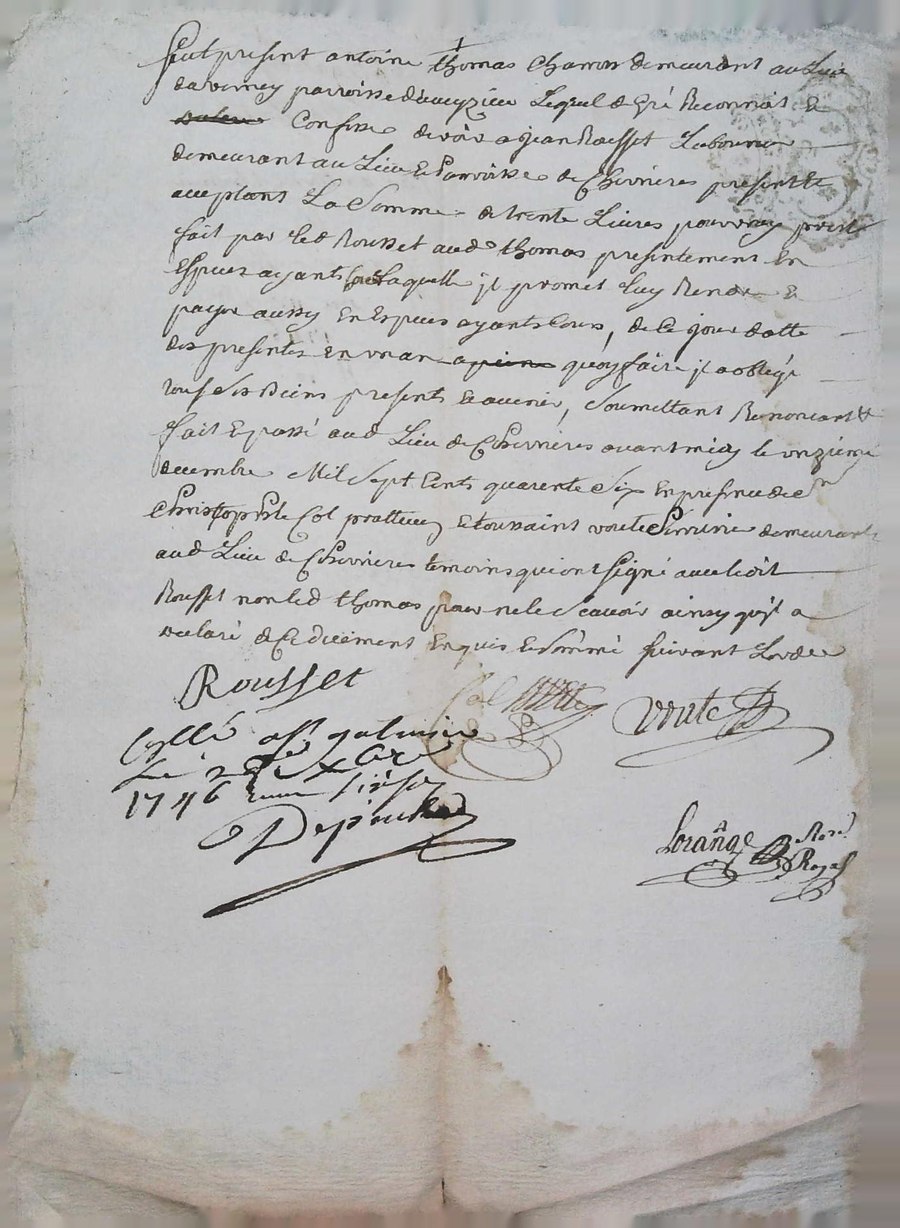 fut present antoine thomas charron demeurant au Lieu
du verney parroisse d'aveyzieu Lequel de gré Reconnait et
Confesse devoir a jean Rousset Laboureur
demeurant au Lieu et Parroisse de Chevrières present et
acceptant La Somme de trente Livres pour vray prest
fait par led Rousset aud thomas presentement En
Especes ayants Laquelle jl promet luy Rendre et
payer aussy En Especes ayants Cours, de Ce jour datte
des presentes en un an quoy faire jl a obligé
tous Ses Biens presents et avenir, Soumettant Renoncant &
fait et passé aud Lieu de Chevrières avant midy le onzieme
decembre Mil Sept Cents quarente Six En presence de Sr
Christophle Col pratticien et toussaint voute demeurants
aud Lieu de Chevrieres temoins qui ont signé avec ledit
Rousset non led thomas pour ne le Scavoir ainsy qu'jl a
declaré de Ce duement Enquis et Sommé Suivant Lord
Rousset
Col voute
Cllé a St galmier
Le Xbre
1746
Lorange Nore
Royal